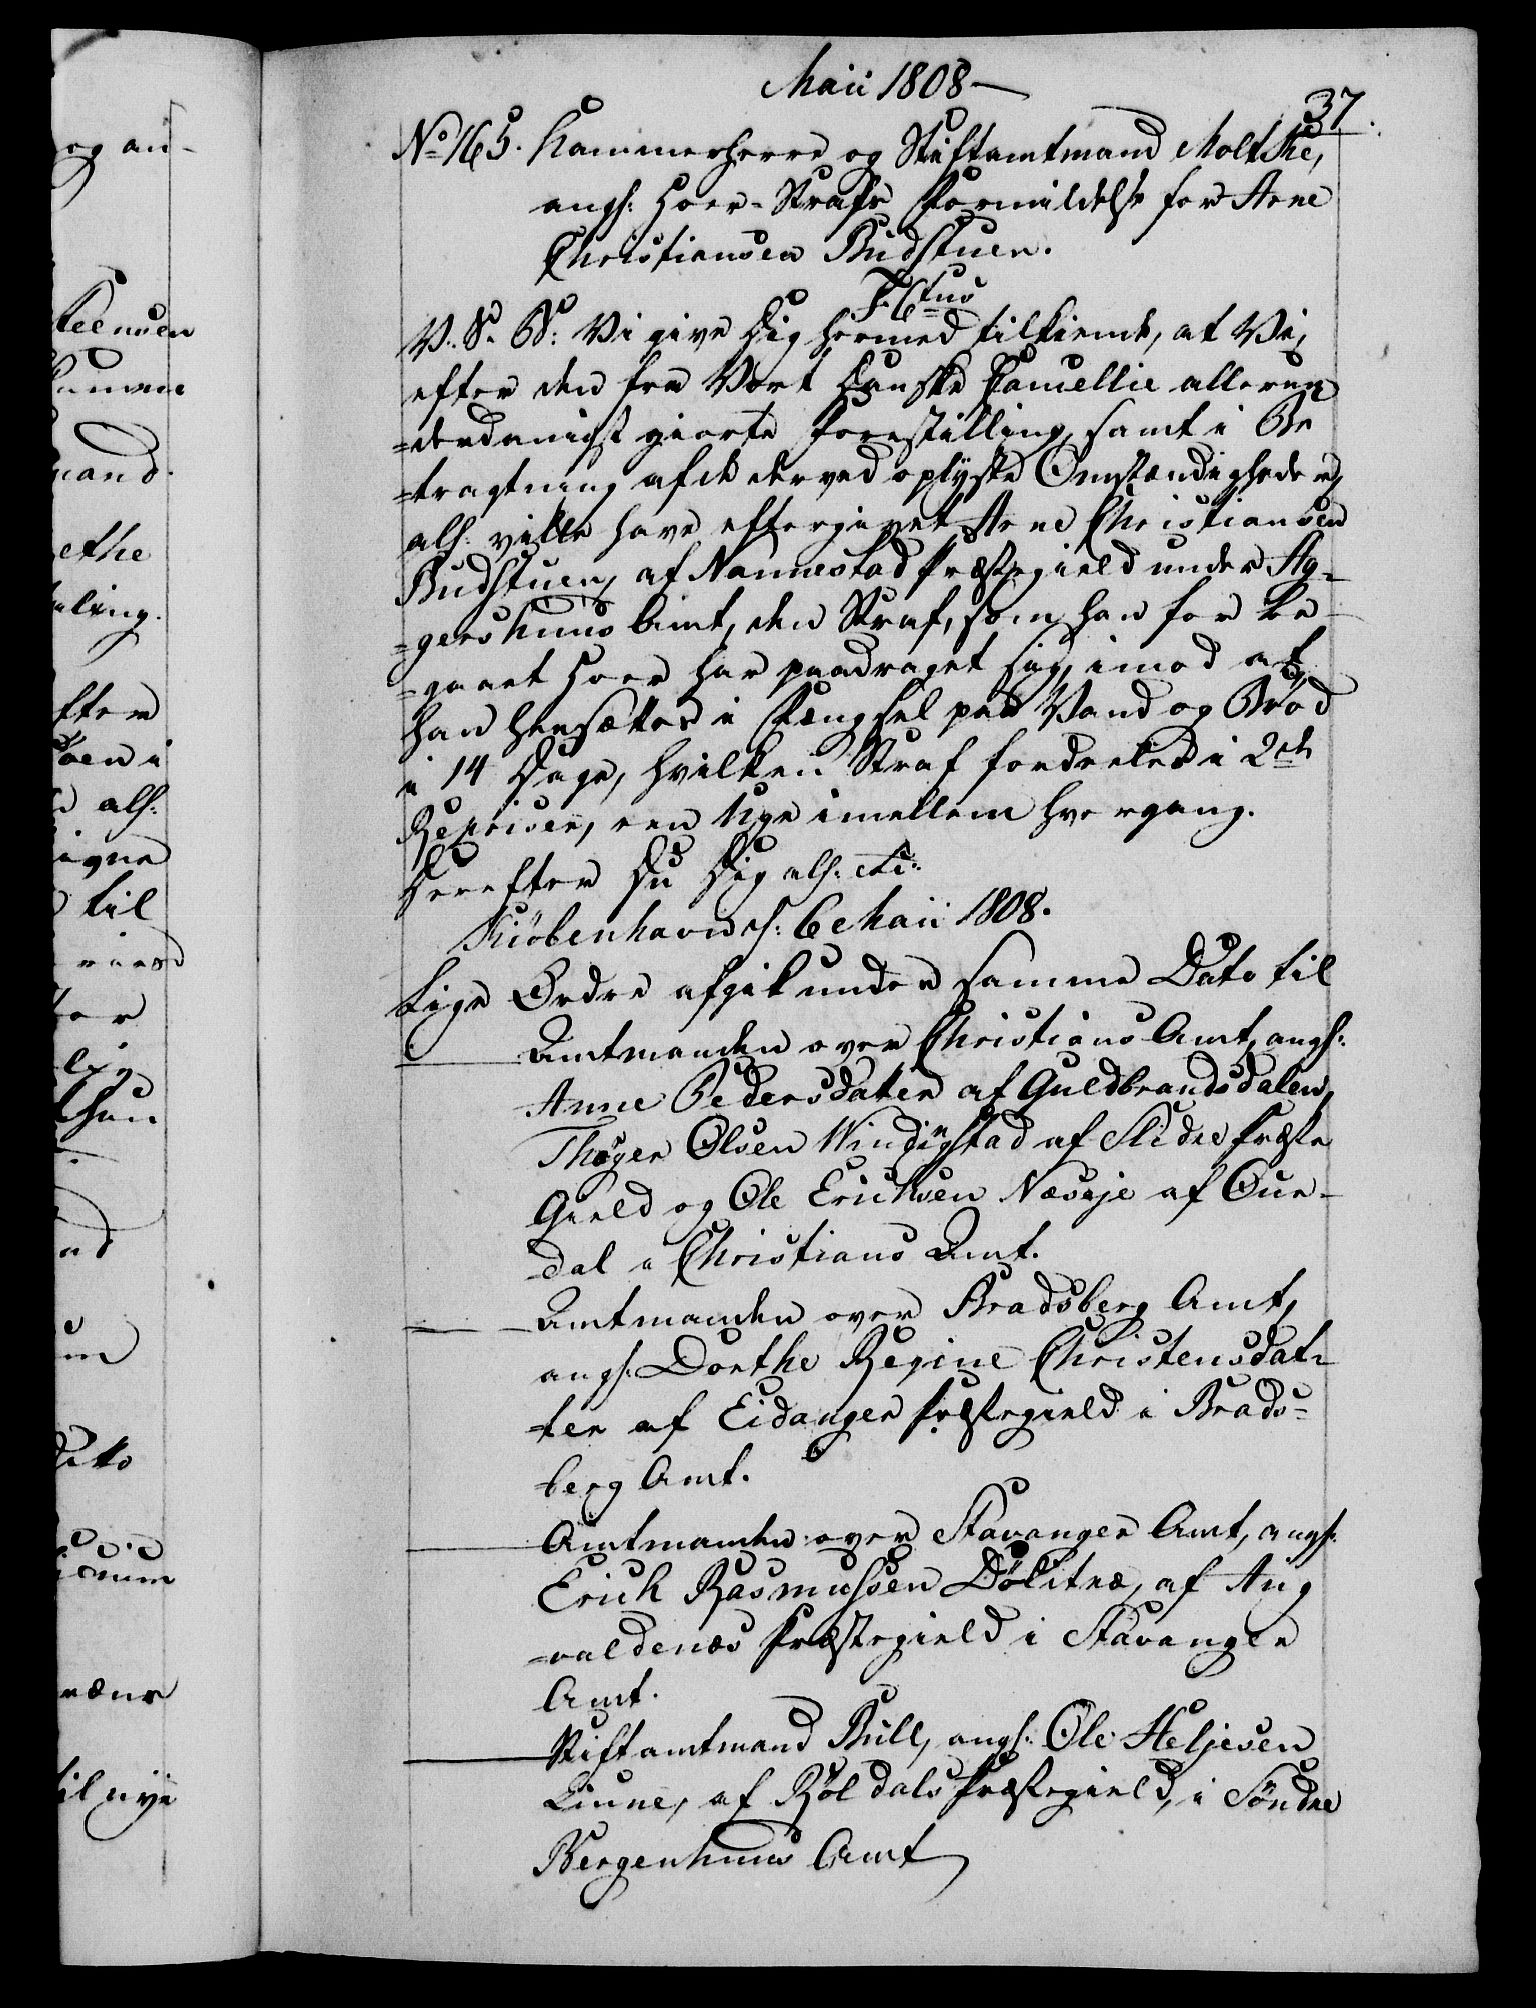 Maii 1808
37.
No 165. Kammerherre og Stiftamtmand Moltke,
angl: Hoer-Strafs Formildelse for Arne
Christiansen Budstuen.
F. 6tus
V. S. B: Vi give Dig hermed tilkiende, at Vi,
efter den fra Vort Danske Cancellie allerun
=derdanigst giorte Forestilling, samt i Be
=tragtning af de derved oplyste Omstændigheder,
all: ville have eftergivet Arne Christiansen
Budstuen, af Nannestad Præstegield under Ag=
=gershuus Amt, den Straf, som han for be-
=gaaet Hoer har paadraget sig, imod at
han hensættes i Fængsel paa Vand og Brød
i 14 Dage, hvilken Straf fordeeles i 2de
Repriser, een Uge imellem hvergang.
Herefter Du Dig all: etc:
Kiöbenhavn d: 6 Maii 1808.
Lige Ordre afgik under samme Dato til
Amtmanden over Christians Amt, angl:
Anne Pedersdatter af Guldbrandsdalen,
Thøger Olsen Windingstad af Slidre Præste
Gield og Ole Erichsen Næseje af Our-
dal i Christians Amt.
Amtmanden over Bradsberg Amt,
angl: Dorthe Regine Christensdat=
=ter af Eidanger Præstegield i Brads=
=berg Amt.
Amtmanden over Stavanger Amt, angl:
Erich Rasmussen af Aug
=valdsnæs Præstegield i Stavanger
Amt.
Stiftamtmand Bull, angl: Ole Heljesen
Liune, af Röldals Præstegield, i Söndre
Bergenhuus Amt
og an-
steensen
mand.
ethe
aling.
efter
i
all:
igne
til
ter
lig
nd
ditto
til nye